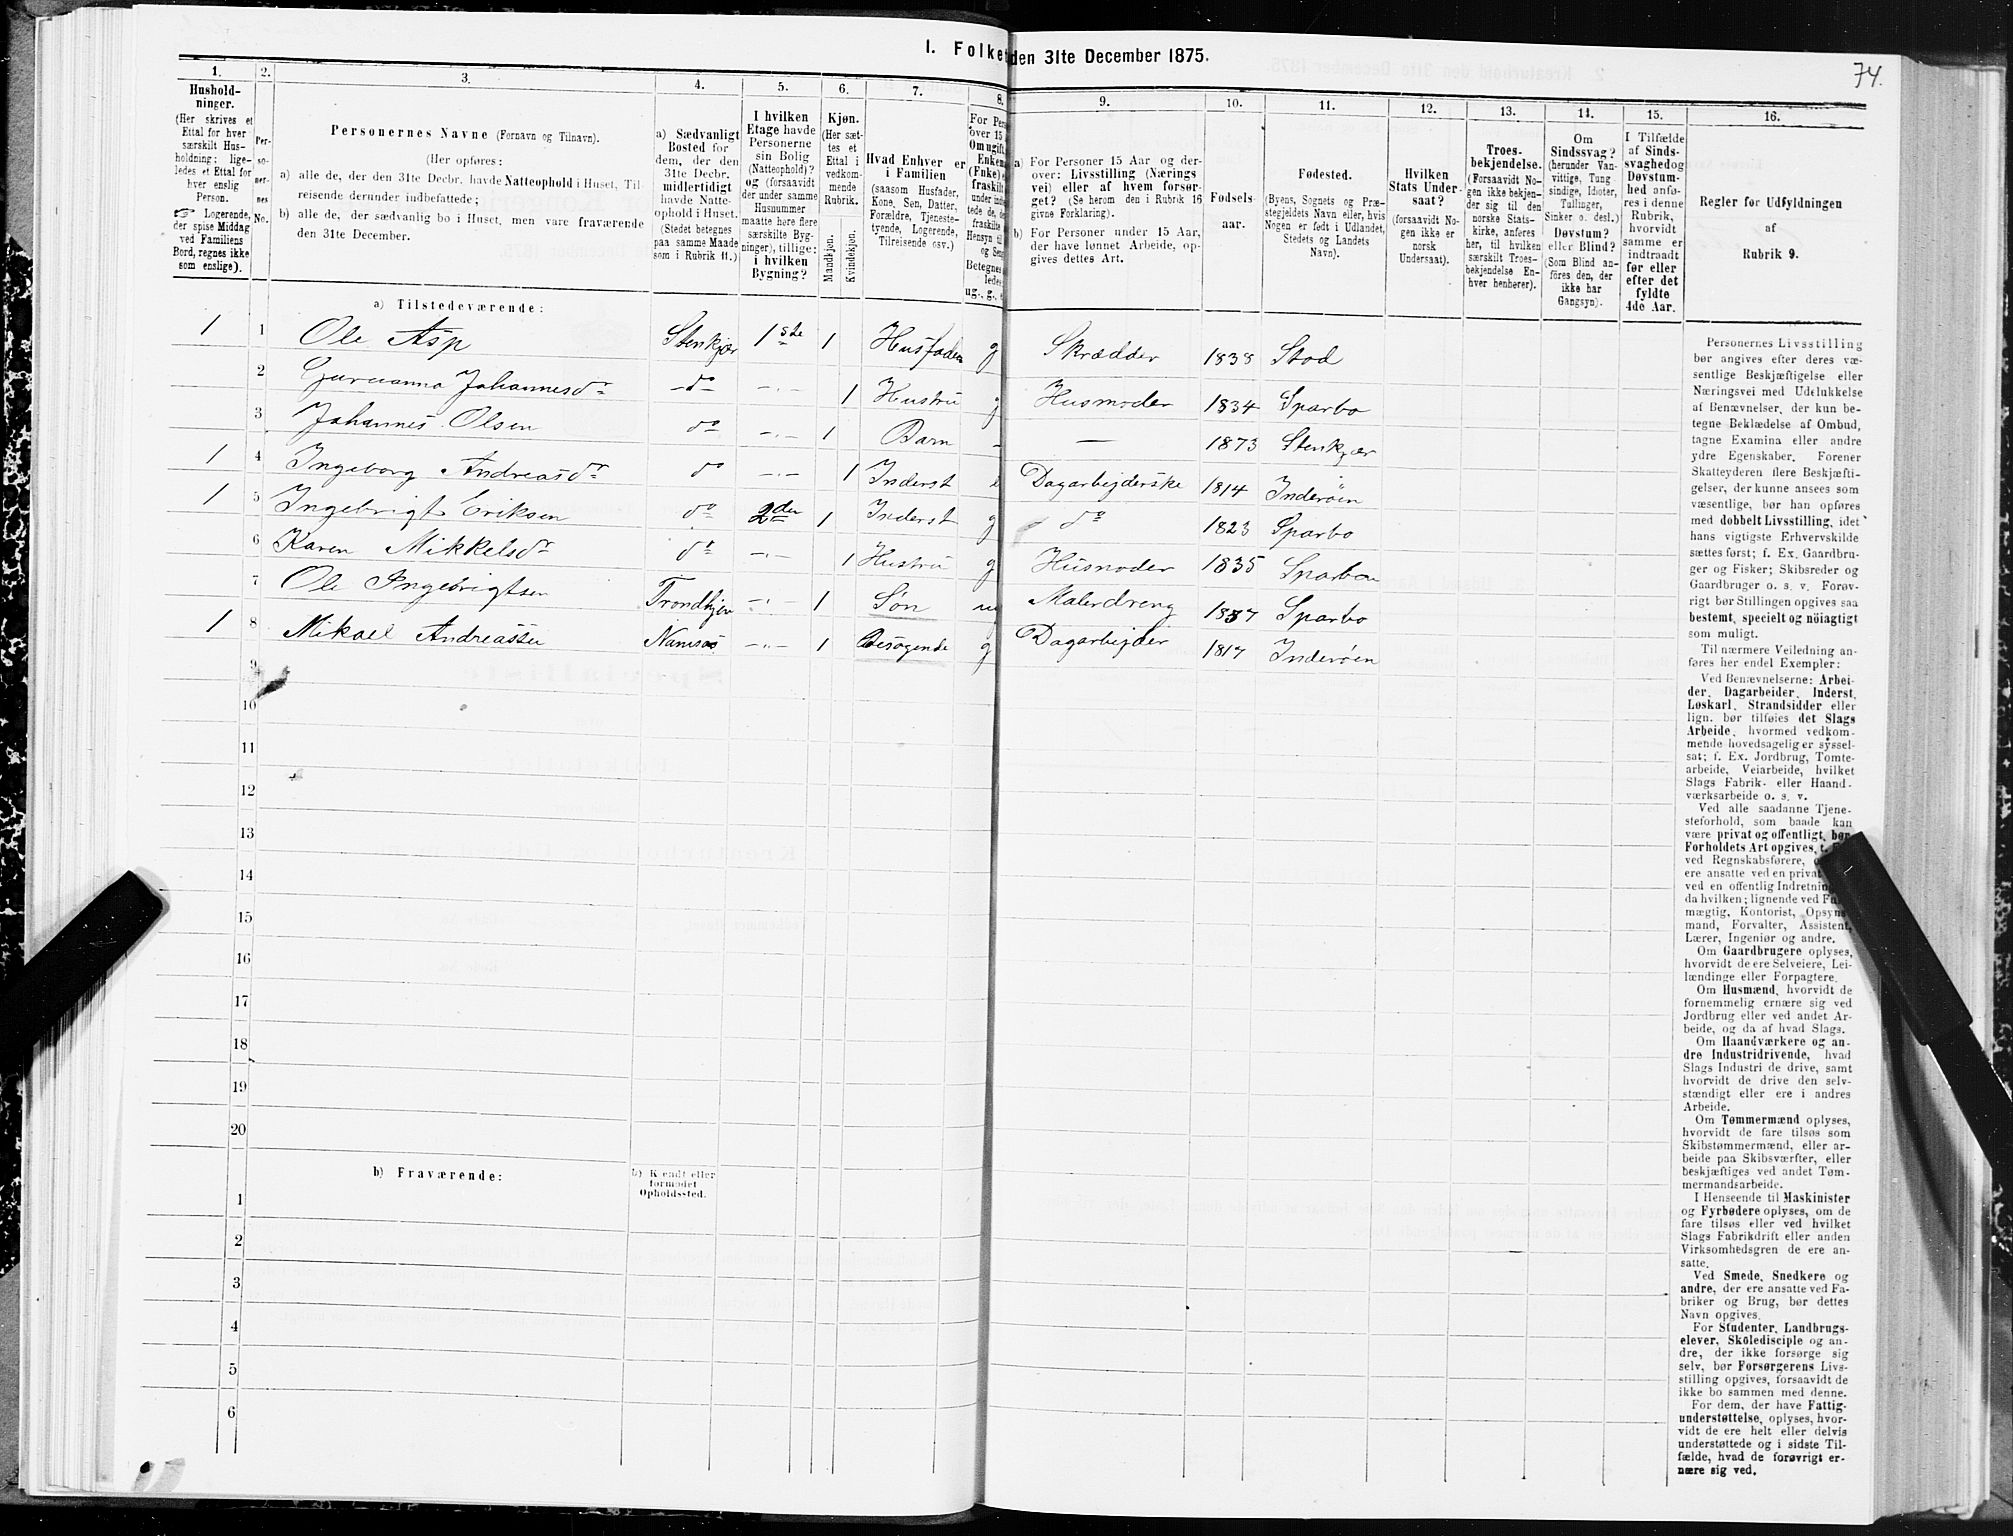 I. Folke den 31te December 1875.
74.
1. 2. 3. 4. 5. 6. 7. 8. 9. 10. 11. 12. 13. 14. 15. 16.
Hushold-
ninger.
(Her skrives et
Ettal for hver
særskilt Hus-
holdning; lige-
ledes et Ettal for
hver enslig
Person.
☞ Logerende,
der spise Middag
ved Familiens
Bord, regnes ikke
som enslige).
Per-
so-
ner-
nes
No.
Personernes Navne (Fornavn og Tilnavn).
(Her opføres:
a) alle de, der den 31te Decbr. havde Natteophold i Huset, Til-
reisende derunder indbefattede;
b) alle de, der sædvanlig bo i Huset, men vare fraværende
den 31te December.
a) Sædvanligt
Bosted for
dem, der den
31te Decbr.
midlertidigt
havde Natte-
ophold i Huset.
(Stedet betegnes
paa samme Maade
som i Rubrik 11.)
I hvilken
Etage havde
Personerne
sin Bolig
(Natteophold)?
og (forsaavidt
der under samme
Husnummer
maatte høre flere
særskilte Byg-
ninger), tillige:
i hvilken
Bygning?
Kjøn.
(Her sæt-
tes et
Ettal i
vedkom-
mende
Rubrik.
Mandkjøn.
Kvindekjøn.
Hvad Enhver er
i Familien
(saasom Husfader,
Kone, Søn, Datter,
Forældre, Tjeneste-
tyende, Logerende,
Tilreisende osv.)
For Pers
over 15
Om ugift,
Enkem
(Enke)
fraskilt
under ind
tede de,
fraskilte
Hensyn til
og Sen
Betegnes
ledes
ug., g.,
a) For Personer 15 Aar og der-
over: Livsstilling (Nærings
vei) eller af hvem forsør-
get? (Se herom den i Rubrik 16
givne Forklaring).
b) For Personer under 15 Aar,
der have lønnet Arbeide, op-
gives dettes Art.
Fødsels-
aar.
Fødested.
(Byens, Sognets og Præ-
stegjeldets Navn eller, hvis
Nogen er født i Udlandet,
Stedets og Landets
Navn).
Hvilken
Stats Under-
saat?
(forsaavidt No-
gen ikke er
norsk
Undersaat).
Troes-
bekjendelse.
(Forsaavidt No-
gen ikke bekjen-
der sig til den
norske Stats-
kirke, anføres
her, til hvilken
særskilt Troes-
bekjendelse En-
hver henhører).
Om
Sindssvag?
(herunder Van-
vittige, Tung
sindige, Idioter,
Tullinger,
Sinker o. desl.)
Døvstum?
eller Blind?
(Som Blind an-
føres den, der
ikke har
Gangsyn).
I Tilfælde
af Sinds-
svaghed og
Døvstum-
hed anfø-
res i denne
Rubrik,
hvorvidt
samme er
indtraadt
før eller
efter det
fyldte
4de Aar.
Regler for Udfyldningen
af
Rubrik 9.
a) Tilstedeværende:
1 1 Ole Asp Stenkjær 1ste 1 Husfader g Skrædder 1838 Stod
2 Johannesdr do 1 Hustru g Husmoder 1834 Sparbo
3 Johannes Olsen do 1 Barn - — 1873 Stenkjær
1 4 Ingeborg Andreasdr do 1 Inderst e Dagarbejderske 1814 Inderøen
1 5 Ingebrigt Eriksen do 2den 1 Inderst g do 1823 Sparbo
6 Karen Mikkelsdr do 1 Hustru g Husmoder 1835 Sparbo
7 Ole Ingebrigtsen Trondhjem 1 Søn ug Malerdreng 1857 Sparbo
1 8 Mikael Andreassen Namsos 1 Besøgende g Dagarbejder 1817 Inderøen
9
10
11
12
13
14
15
16
17
18
19
20
b) Fraværende:
b) Kjendt eller
formodet
Opholdssted.
1
2
3
4
5
6
Personernes Livsstilling
bør angives efter deres væ-
sentlige Beskjæftigelse eller
Næringsvei med Udelukkelse
af Benævnelser, der kun be-
tegne Beklædelse af Ombud,
tagne Examina eller andre
ydre Egenskaber. Forener
Skatteyderen flere Beskjæfti-
gelser, der kunne ansees som
væsentlige, bør han opføres
med dobbelt Livsstilling, idet
hans vigtigste Erhvervskilde
sættes først; f. Ex. Gaardbru-
ger og Fisker; Skibsreder og
Gaardbruger o. s. v. Forøv-
rigt bør Stillingen opgives saa
bestemt, specielt og nöiagtigt
som muligt.
Til nærmere Veiledning an-
føres her endel Exempler:
Ved Benævnelserne: Arbei-
der, Dagarbeider, Inderst,
Løskarl, Strandsidder eller
lign. bør tilføies det Slags
Arbeide, hvormed vedkom-
mende hovedsagelig er syssel-
sat; f. Ex. Jordbrug, Tomte-
arbeide, Veiarbeide, hvilket
Slags Fabrik- eller Haand-
værksarbeide o. s. v.
Ved alle saadanne Tjene-
steforhold, som baade kan
være privat og offentligt, bør
Forholdets Art opgives,
ved Regnskabsførere,
ere ansatte ved en privat
ved en offentlig Indretning
da hvilken; lignende ved
mægtig, Kontorist, Opsyns-
mand, Forvalter, Assistent,
Lærer, Ingeniør og andre.
Om Gaardbrugere oplyses,
hvorvidt de ere Selveiere, Lei-
lændinge eller Forpagtere.
Om Husmænd, hvorvidt de
fornemmelig ernære sig ved
Jordbrug eller ved andet Ar-
beide, og da af hvad Slags.
Om Haandværkere og an-
dre Industridrivende, hvad
Slags Industri de drive, samt
hvorvidt de drive den selv-
stændigt eller ere i andres
Arbeide.
Om Tømmermænd oplyses,
hvorvidt de fare tilsøs som
Skibstømmermænd, eller ar-
beide paa Skibsværfter, eller
beskjæftiges ved andet Tøm-
mermandsarbeide.
I Henseende til Maskinister
og Fyrbødere oplyses, om de
fare tilsøs eller ved hvilket
Slags Fabrikdrift eller anden
Virksomhedsgren de ere an-
satte.
Ved Smede, Snedkere og
andre, der ere ansatte ved Fa-
briker og Brug, bør dettes
Navn opgives.
For Studenter, Landbrugs-
elever, Skoledisciple og an-
dre, der ikke forsørge sig
selv, bør Forsørgerens Livs-
stilling opgives, forsaavidt de
ikke bo sammen med denne.
For dem, der have Fattig-
understøttelse, oplyses, hvor-
vidt de ere helt eller delvis
understøttede og i sidste Til-
fælde, hvad de forøvrigt er-
nære sig ved.